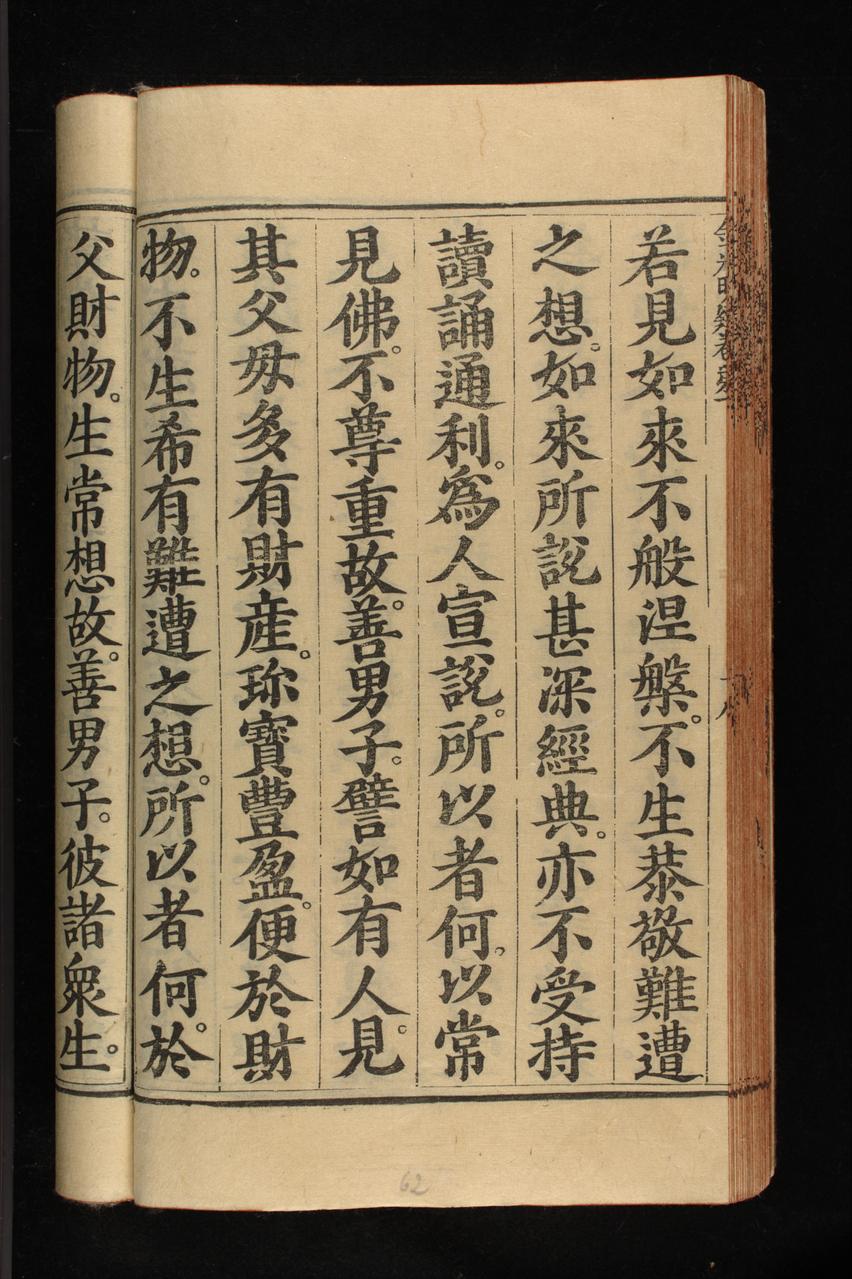 若見如來不般涅槃。不生恭敬難遭
之想。如來所說甚深經典。亦不受持
讀誦通利。爲人宣說。所以者何。以常
見佛。不尊重故。善男子。譬如有人。見
其父母多有財產。珎寶豐盈。便於財
物。不生希有難遭之想。所以者何。於
父財物。生常想故。善男子。彼諸衆生。
62